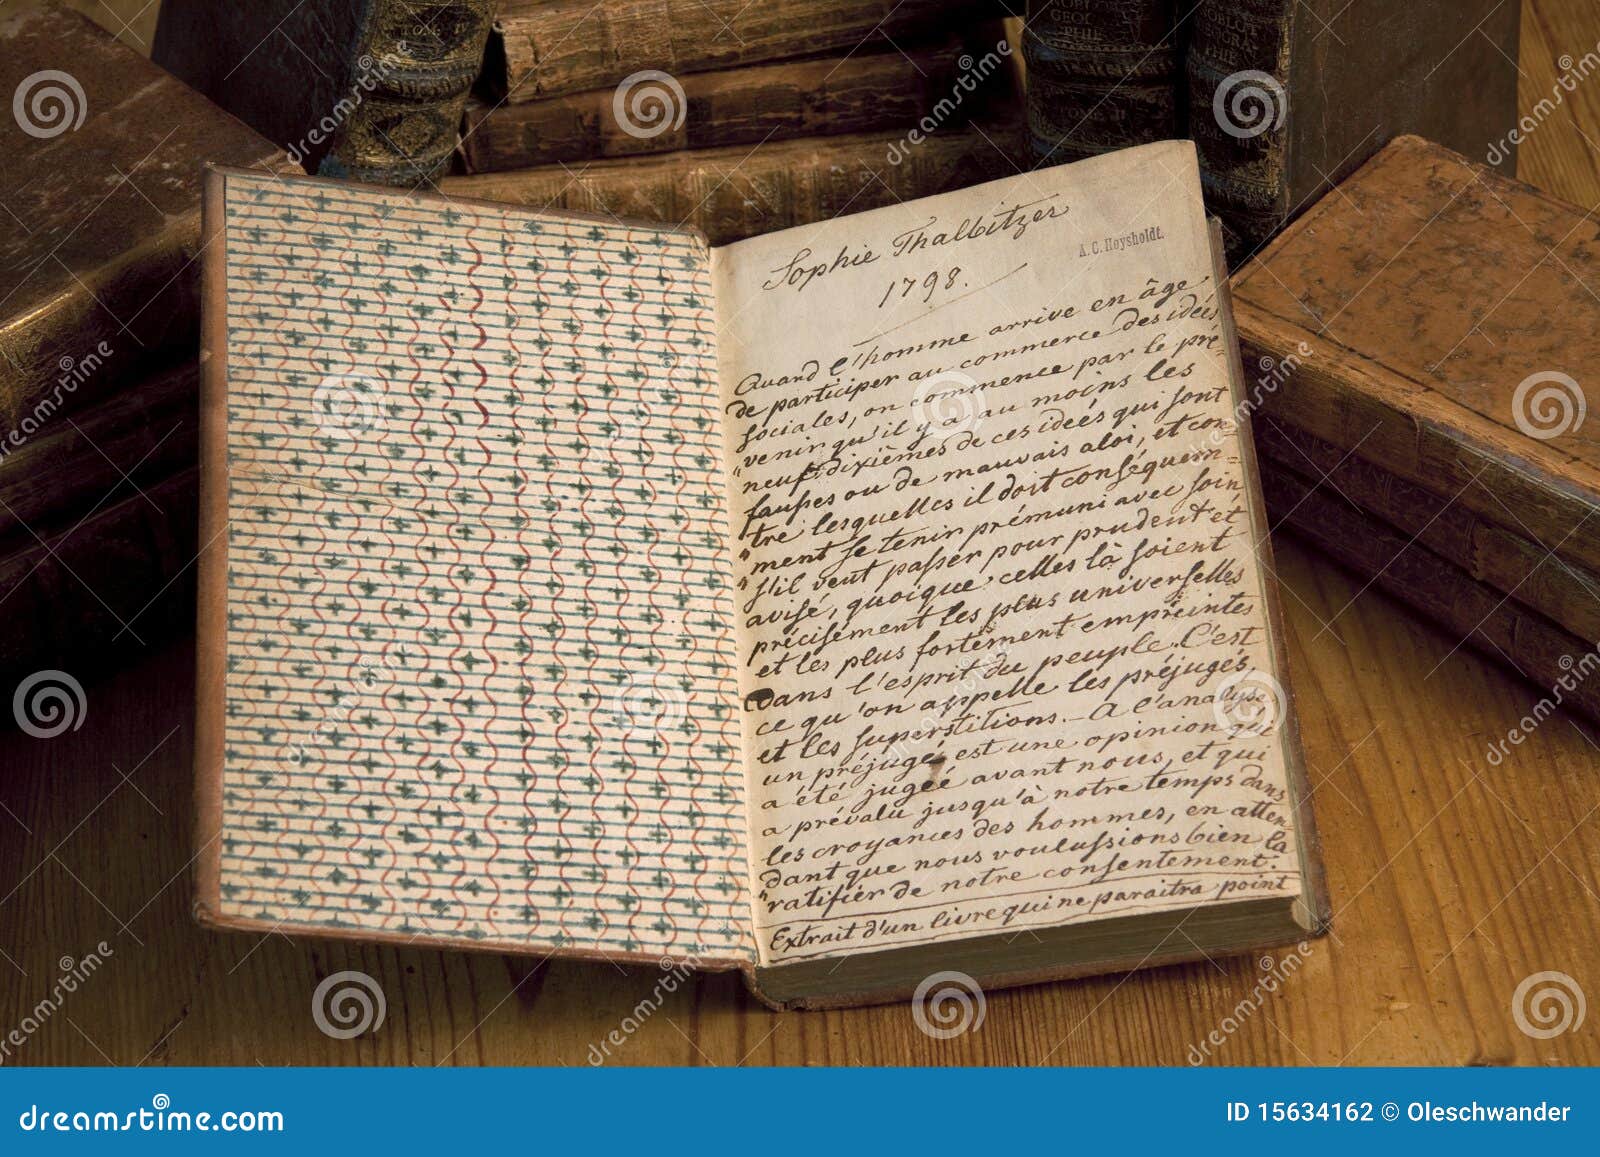 TOM. II
ROBLOT
GEOGRA
PHIE
TOME. II
ROBLOT
GEOGRA
PHIE.
TOME
III
Sophie Thalbitzer
1798.
A. C. Hoysholdt.
Quand l'homme arrive en âge
de participer au commerce des ideés
sociales, on commence par le pré-
"venir qu'il y a au moins les
neuf dixièmes de ces ideés qui sont
fausses ou de mauvais aloi, et con-
"tre lesquelles il doit conséquem-
"ment se tenir prémuni avec soin
"s'il veut passer pour prudent et
avisé, quoique celles là soient
précisément les plus universelles
et les plus fortement empreintes
dans l'esprit du peuple. C'est
ce qu'on appelle les préjugés,
et les superstitions. - A l'analyse
un préjugé est une opinion qui
a été jugeé avant nous, et qui
a prévalu jusqu'à notre temps dans
les croyances des hommes, en atten-
dant que nous voulussions bien la
"ratifiér de notre consentement.
Extrait d'un livre qui ne paraitra point
dreamstime.com
ID 15634162 © Oleschwander